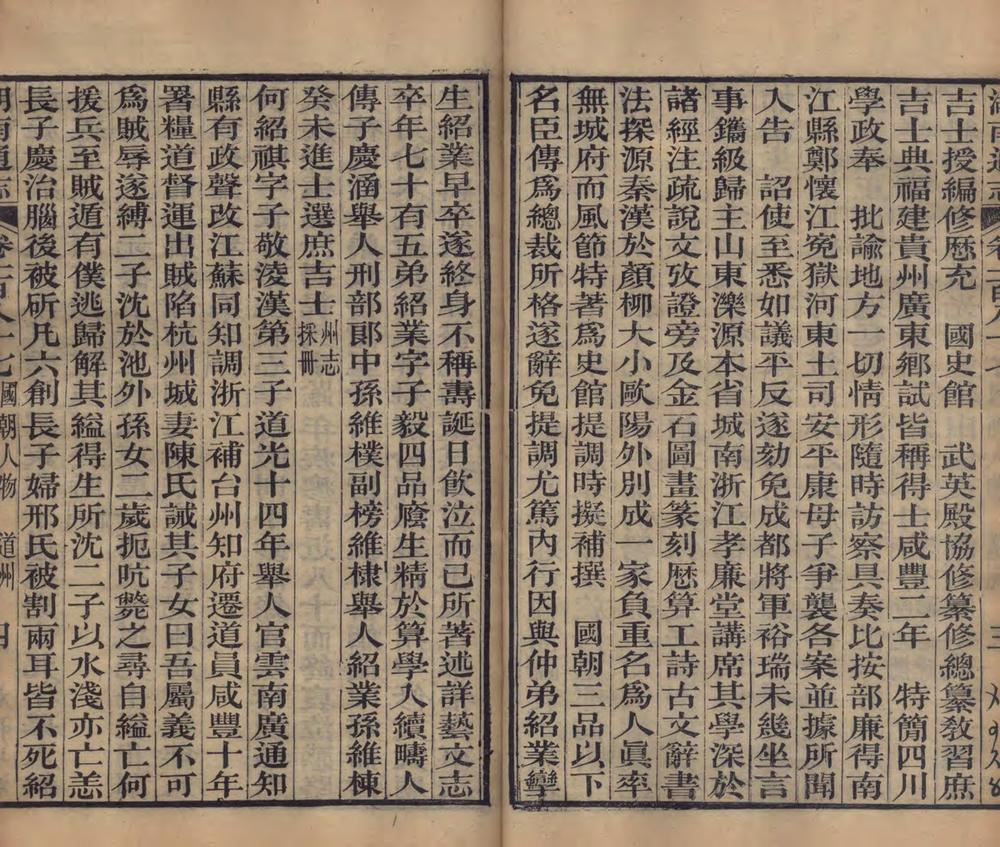 吉士授編修歴充　國史館　武英殿協修纂修總纂教習庶
吉士典福建貴州廣東鄉試皆稱得士咸豐二年　特簡四川
學政奉　批諭地方一切情形隨時訪察具奏比按部廉得南
江縣鄭懷江冤獄河東土司安平康母子爭襲各案並據所聞
入告　詔使至悉如議平反遂劾免成都將軍裕瑞未幾坐言
事鐫級歸主山東濼源本省城南浙江孝廉堂講席其學深於
諸經注疏說文攷證旁及金石圖畫篆刻厯算工詩古文辭書
法探源秦漢於顏柳大小歐陽外別成一家負重名爲人眞率
無城府而風節特著爲史館提調時擬補撰　國朝三品以下
名臣傳爲總裁所格遂辭免提調尤篤內行因與仲弟紹業孿
生紹業早卒遂終身不稱壽誕日飲泣而已所著述詳藝文志
卒年七十有五弟紹業字子毅四品廕生精於算學入續疇人
傳子慶涵舉人刑部郎中孫維樸副榜維棣舉人紹業孫維棟
癸未進士選庶吉士州志採冊
何紹祺字子敬淩漢第三子道光十四年舉人官雲南廣通知
縣有政聲改江蘇同知調浙江補台州知府遷道員咸豐十年
署糧道督運出賊陷杭州城妻陳氏誡其子女曰吾屬義不可
爲賊辱遂縛二子沈於池外孫女二歲扼吭斃之尋自縊亡何
援兵至賊遁有僕逃歸解其縊得生所沈二子以水淺亦亡恙
長子慶治腦後被斫凡六創長子婦邢氏被割兩耳皆不死紹
國朝人物　道州　四